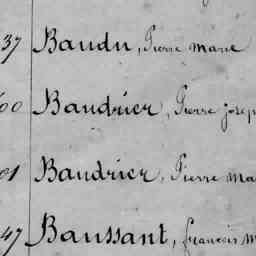 37 Baudu, Pierre Marie
00 Baudrier, Pierre Josep
01 Baudrier, Pierre Ma
47 Baussant, François M